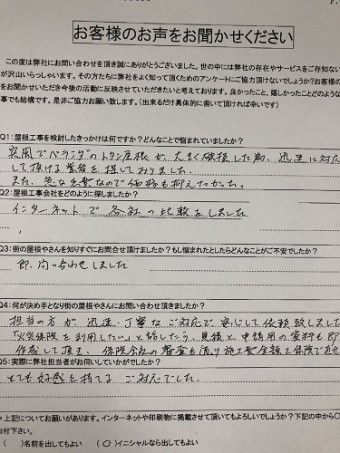 お客様のお声をお聞かせください
この度は弊社にお問い合わせを頂き誠にありがとうございました。世の中には弊社の存在やサービスをご存知ない
が沢山いらっしゃいます。その方たちに弊社をよく知って頂くためのアンケートにご協力頂けないでしょうか?お客様の
をお聞かせいただき今後の活動に反映させていただきたいと考えております。良かったこと、嬉しかったことどのような
事でも結構です。是非ご協力お願い致します。(出来るだけ具体的に書いて頂ければ幸いです)
Q1:屋根工事を検討したきっかけは何ですか?どんなことで悩まれていましたか?
突風でベランダのトタン屋根が大きく破損した為、迅速に対応
して頂ける業者を探しておりました。
また、急な出費なので価格も抑えたかった。
Q2:屋根工事会社をどのように探しましたか?
インターネットで各社の比較をしました
Q3:街の屋根やさんを知りすぐにお問合せ頂けましたか?もし悩まれたとしたらどんなことがご不安でしたか?
即、問い合わせしました
Q4:何が決め手となり街の屋根やさんにお問い合わせ頂きましたか?
担当の方が迅速・丁寧なご対応で安心して依頼致しました
「火災保険を利用したい」と話したら、見積と申請用の資料も即
作成して頂き、保険会社の審査も通り施工費全額保険で
Q5:実際に弊社担当者がお伺いしていかがでしたか?
とても好感を持てるご対応でした。
上記についてお願いがあります。インターネットや印刷物に掲載させて頂いてもよろしいでしょうか?下記の中から○
お付下さい。
( )名前を出してもよい (○)イニシャルなら出してもよい